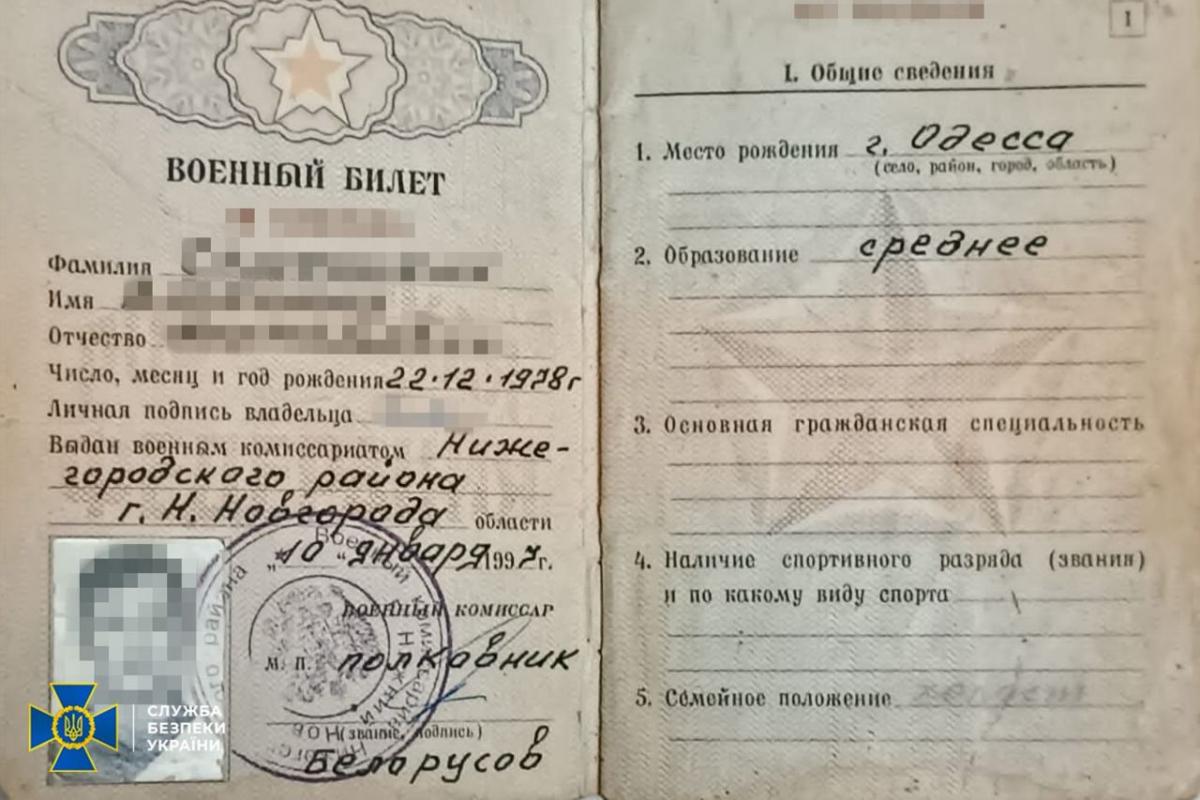 ВОЕННЫЙ БИЛЕТ
Фамилия
Имя
Отчество
Число, месяц и год рождения 22.12.1978г
Личная подпись владельца
Выдан военным комиссариатом Ниже-
городского района
г. Н. Новгорода области
„10“ января 1997г.
ВОЕННЫЙ КОМИССАР
М. П. полковник
(звание, подпись)
Белорусов
СЛУЖБА
БЕЗПЕКИ
УКРАЇНИ
1
I. Общие сведения
1. Место рождения г. Одесса
(село, район, город, область)
2. Образование среднее
3. Основная гражданская специальность
4. Наличие спортивного разряда (звания)
и по какому виду спорта
5. Семейное положение